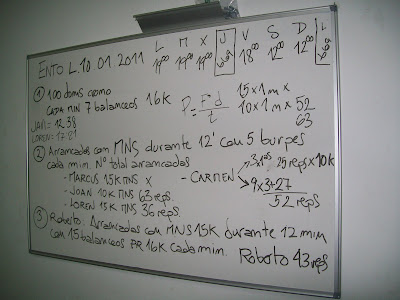 ENTO L.10 01.2011
L M X J V S D L
19:00 19:00 19:00 18:00 12:00 12:00
① 100 doms ciemo
CADA MIN 7 balanceos 16K
P = F·d / t
15 x 1 m x
10 x 1 m x 52
63
JAVI = 12:38
LOREN: 17:21
② Arrancadas con MNS durante 12' con 5 burpees
cada min. Nº total arrancadas
- MARCUS 15K MNS X
- JOAN 10K MNS 63 reps.
- LOREN 15K MNS 36 reps.
- CARMEN 25 reps x 10K
9x3=27
52 reps
③ Roberto. Arrancadas con MNS 15K durante 12 min
con 15 balanceos PR 16K cada min.
Roboto 43 reps